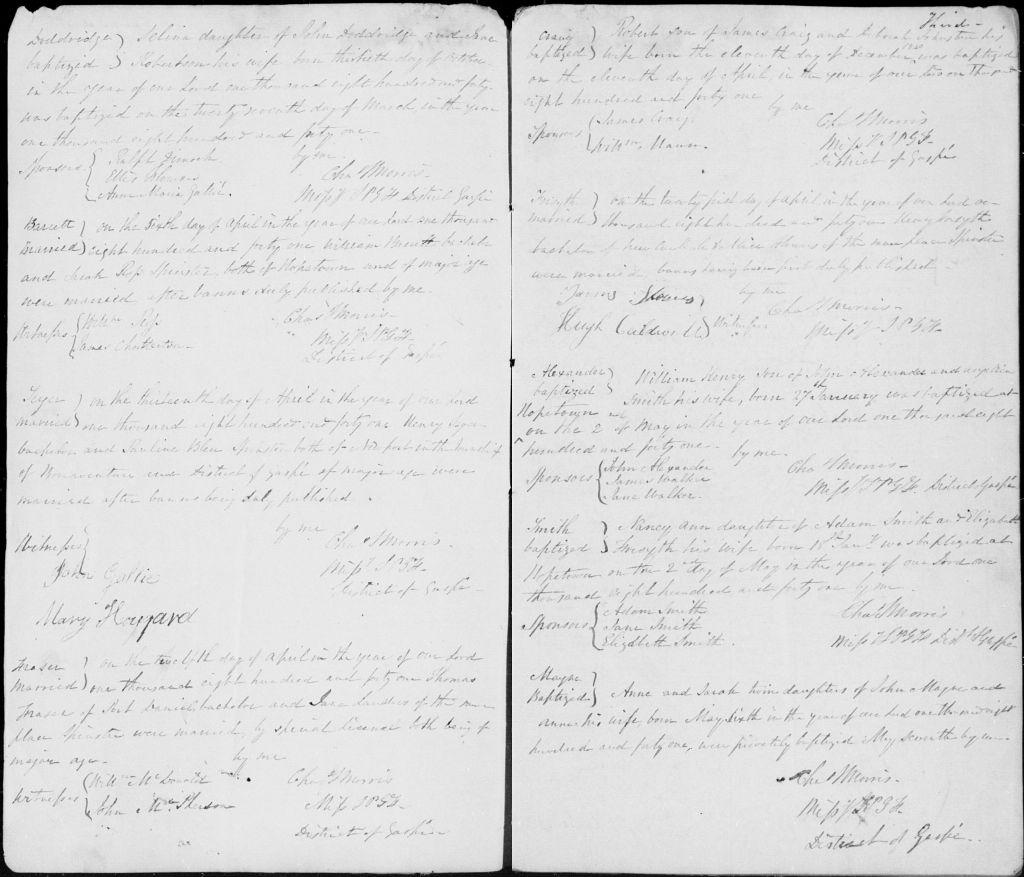 Doddridge } Selina daughter of John Doddridge and Jane
baptized } Robertson his wife born thirtieth day of October
in the year of our Lord one thousand eight hundred and forty
was baptized on the twenty seventh day of March in the year
one thousand eight hundred and forty one.
by me
Sponsors { Ralph
Ellis Flowers
Ann Maria Gallie.
Chas J Morris
Missy S.P.G.F. District Gaspé
Barrett } on the sixth day of April in the year of our Lord one thousand
married } eight hundred and forty one William Barrett bachelor
and Sarah Ross Spinster, both of Hopetown and of major age
were married after banns duly published by me.
Witnesses { Willm Ross
James Chatterton.
Chas J Morris
Missy S.P.G.F.
District of Gaspé
on the thirteenth day of April in the year of our Lord
married } one thousand eight hundred and forty one Henry
bachelor and Pauline Spinster both of New port in the
of Bonaventure and District of Gaspé of major age were
married after banns being duly published.
by me
Witnesses }
John Gallie
Chas J Morris.
Missy S.P.G.F.
District of Gaspé
Mary Hayyard
Fraser } on the twelfth day of April in the year of our Lord
Married } one thousand eight hundred and forty one Thomas
Fraser of Port Daniel bachelor and Jane of the same
place Spinster were married, by special licence both being of
major age.
by me
Witnesses { Willm McDonald
John McPherson
Chas J Morris
Missy S.P.G.F.
District of Gaspé
Third
Craig } Robert son of James Craig and his
baptized } wife born the eleventh day of December 1840 was baptized
on the eleventh day of April, in the year of our Lord one thousand
eight hundred and forty one
by me
Sponsors { James Craig
Willm Mann.
Chas J Morris
Missy S.P.G.F.
District of Gaspé
Forsyth } on the twenty first day of April in the year of our Lord one
married } thousand eight hundred and forty one Henry Forsyth
bachelor of New Carlisle and of the same place Spinster
were married, banns having been first duly published.
by me
James Flowers
Hugh Caldwell } Witnesses
Chas J Morris
Missy S.P.G.F.
Alexander } William Henry Son of Alexander and
baptized } Smith his wife, born 27th January was baptized at
Hopetown
on the 2nd of May in the year of our Lord one thousand eight
hundred and forty one.
by me.
Sponsors { John Alexander
James Walker
Jane Walker.
Chas J Morris
Missy S.P.G.F. District Gaspé
Smith } Nancy Ann daughter of Adam Smith and Elizabeth
baptized } Forsyth his wife born 18th Jany was baptized at
Hopetown on the 2nd day of May in the year of our Lord one
thousand eight hundred and forty one by me.
Sponsors { Adam Smith
Jane Smith
Elizabeth Smith.
Chas J Morris
Missy S.P.G.F. Dist of Gaspé
Mayne
Baptized } Anne and Sarah twin daughters of John Mayne and
Anne his wife, born May sixth in the year of our Lord one thousand eight
hundred and forty one, were privately baptized May seventh by me
Chas J Morris.
Missy S.P.G.F.
District of Gaspé.